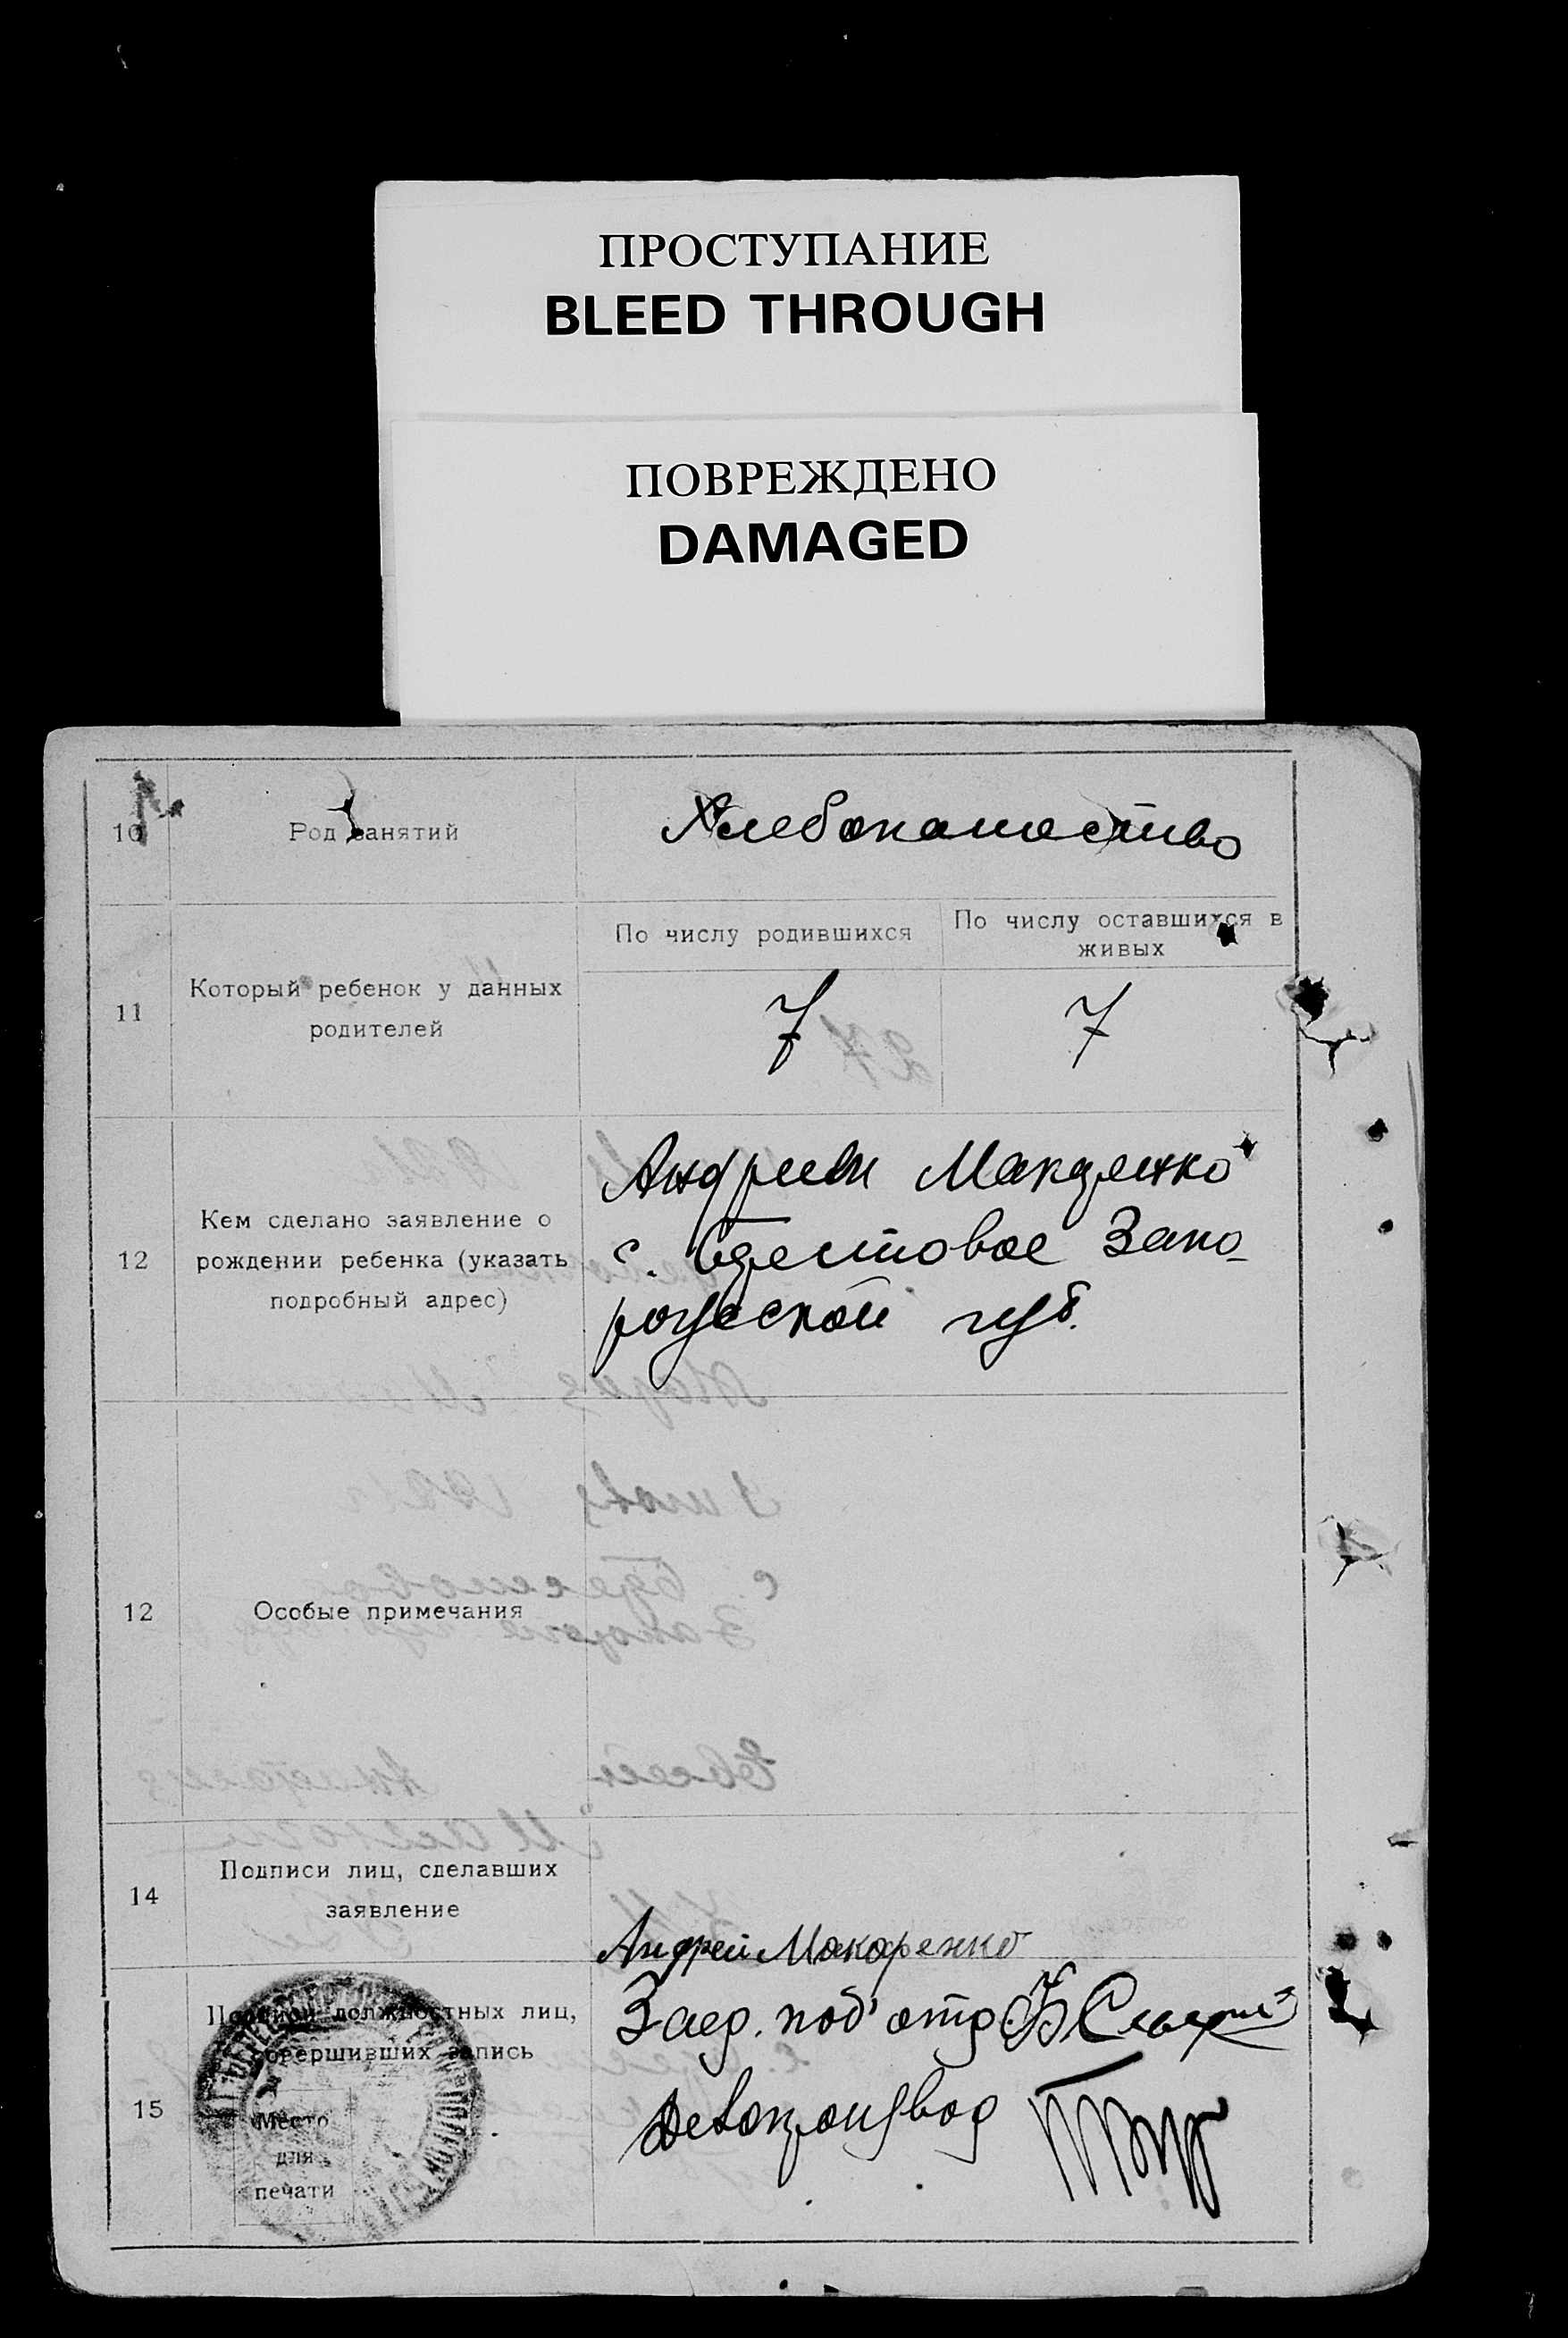 ПРОСТУПАНИЕ
BLEED THROUGH
ПОВРЕЖДЕНО
DAMAGED
10 Род занятий Хлебопашество
11 Который ребенок у данных
родителей
По числу родившихся
По числу оставшихся в
живых
7 7
12 Кем сделано заявление о
рождении ребенка (указать
подробный адрес)
Андрей Макаренко
с. Берестовое Запо-
рожской губ.
12 Особые примечания
14 Подписи лиц, сделавших
заявление
Андрей Макаренко
15 Подписи должностных лиц,
совершивших запись
Место
для
печати
Завед. под'отд.
Делопроизвод